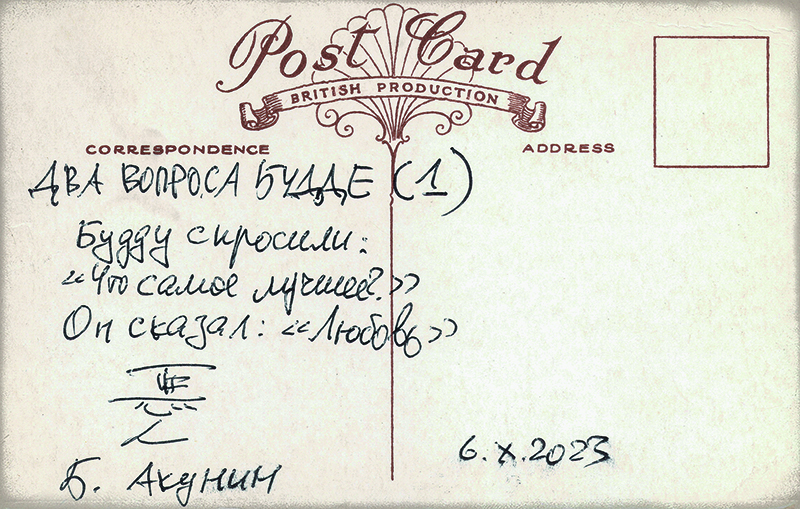 Post Card
BRITISH PRODUCTION
CORRESPONDENCE
ADDRESS
ДВА ВОПРОСА БУДДЕ (1)
Будду спросили:
«Что самое лучшее?»
Он сказал: «Любовь»
Б. Акунин
6.X.2023